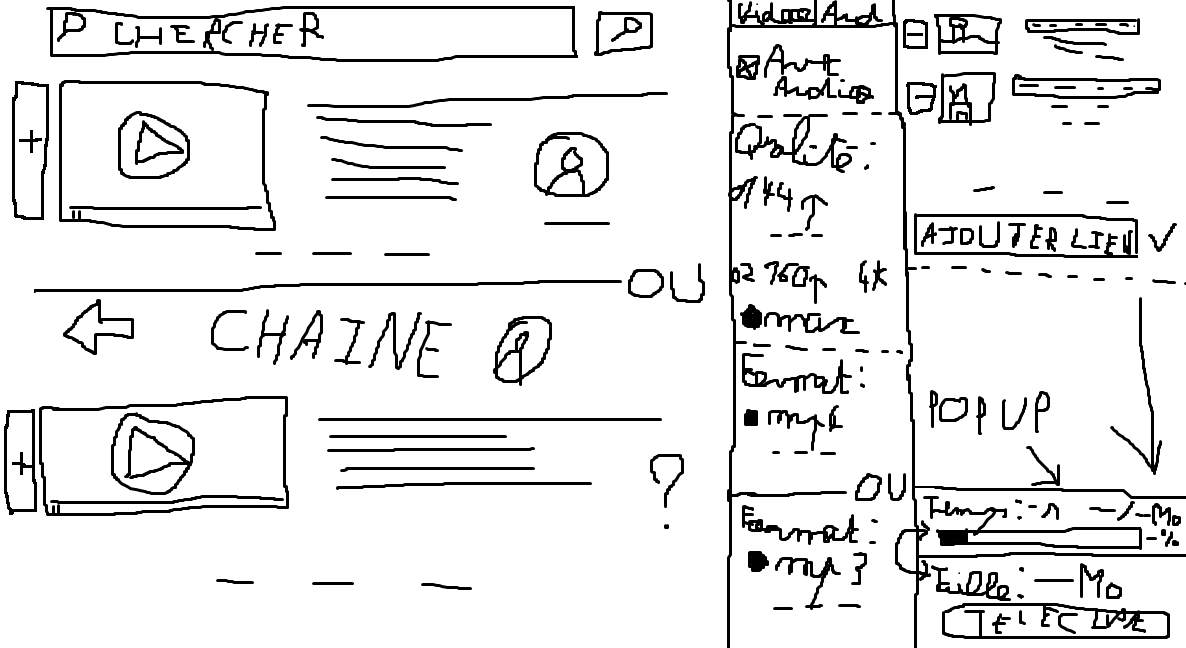 CHERCHER
OU
CHAINE
?
Video Aud
Avec
Audio
Qualité:
144p
360p 4k
max
Format:
mp4
OU
Format:
mp3
AJOUTER LIEN
POPUP
Temps: -s -/-Mo
-%
Taille: -Mo